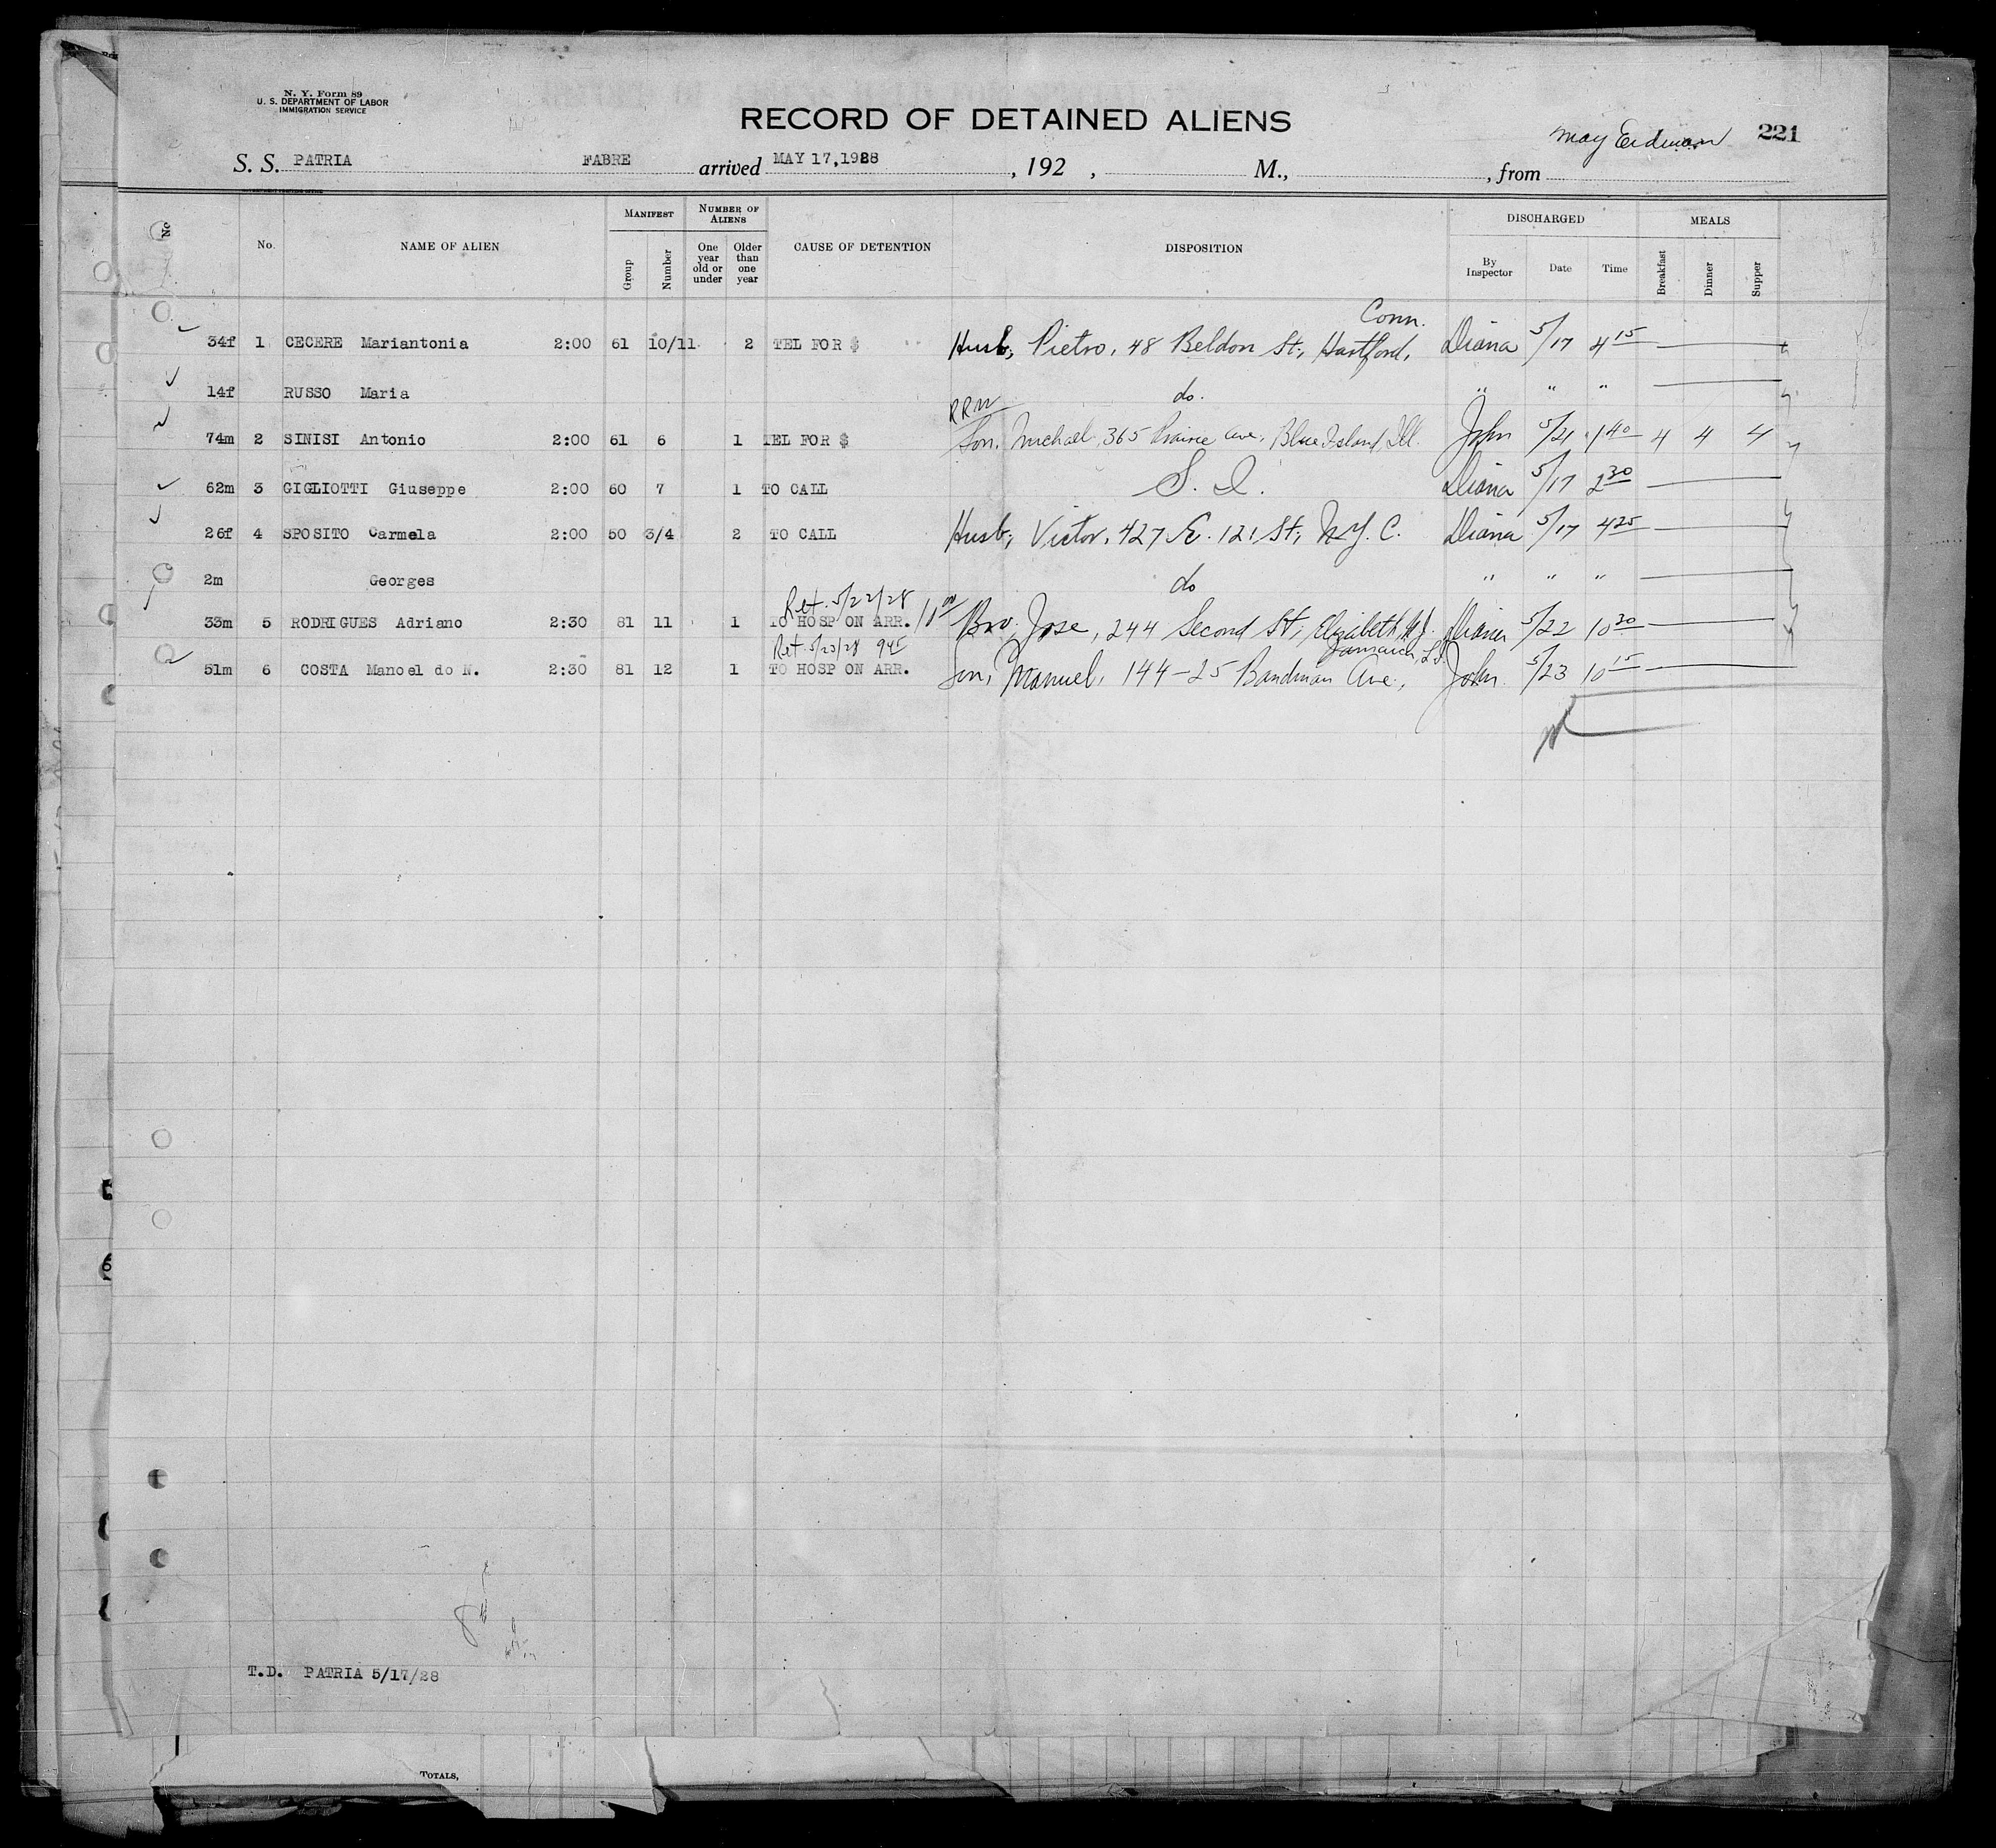 N. Y. Form 89
U. S. DEPARTMENT OF LABOR
IMMIGRATION SERVICE
RECORD OF DETAINED ALIENS
May Erdman 221
S. S. PATRIA FABRE arrived MAY 17, 1928 , 192 , M., , from
No. No. NAME OF ALIEN MANIFEST Group Number NUMBER OF ALIENS One year old or under Older than one year CAUSE OF DETENTION DISPOSITION DISCHARGED By Inspector Date Time MEALS Breakfast Dinner Supper
Conn.
34f 1 CECERE Mariantonia 2:00 61 10/11 2 TEL FOR $ Husb, Pietro, 48 Beldon St., Hartford, Diana 5/17 4 15
14f RUSSO Maria do. " " "
RRM
74m 2 SINISI Antonio 2:00 61 6 1 TEL FOR $ Son, Michael, 365 Prairie Ave, Blue Island, Ill. John 5/21 1 40 4 4 4
62m 3 GIGLIOTTI Giuseppe 2:00 60 7 1 TO CALL S. I. Diana 5/17 2 30
26f 4 SPOSITO Carmela 2:00 50 3/4 2 TO CALL Husb, Victor, 427 E. 121 St., N.Y.C. Diana 5/17 4 25
2m Georges do " " "
Ret. 5/22/28 10 00
33m 5 RODRIGUES Adriano 2:30 81 11 1 TO HOSP ON ARR. Bro, Jose, 244 Second St, Elizabeth, N.J. Diana 5/22 10 30
Ret. 5/23/28 9 45 Jamaica, L.I.
51m 6 COSTA Manoel do N. 2:30 81 12 1 TO HOSP ON ARR. Son, Manuel, 144-25 Bandman Ave., John 5/23 10 15
T.D. PATRIA 5/17/28
TOTALS,